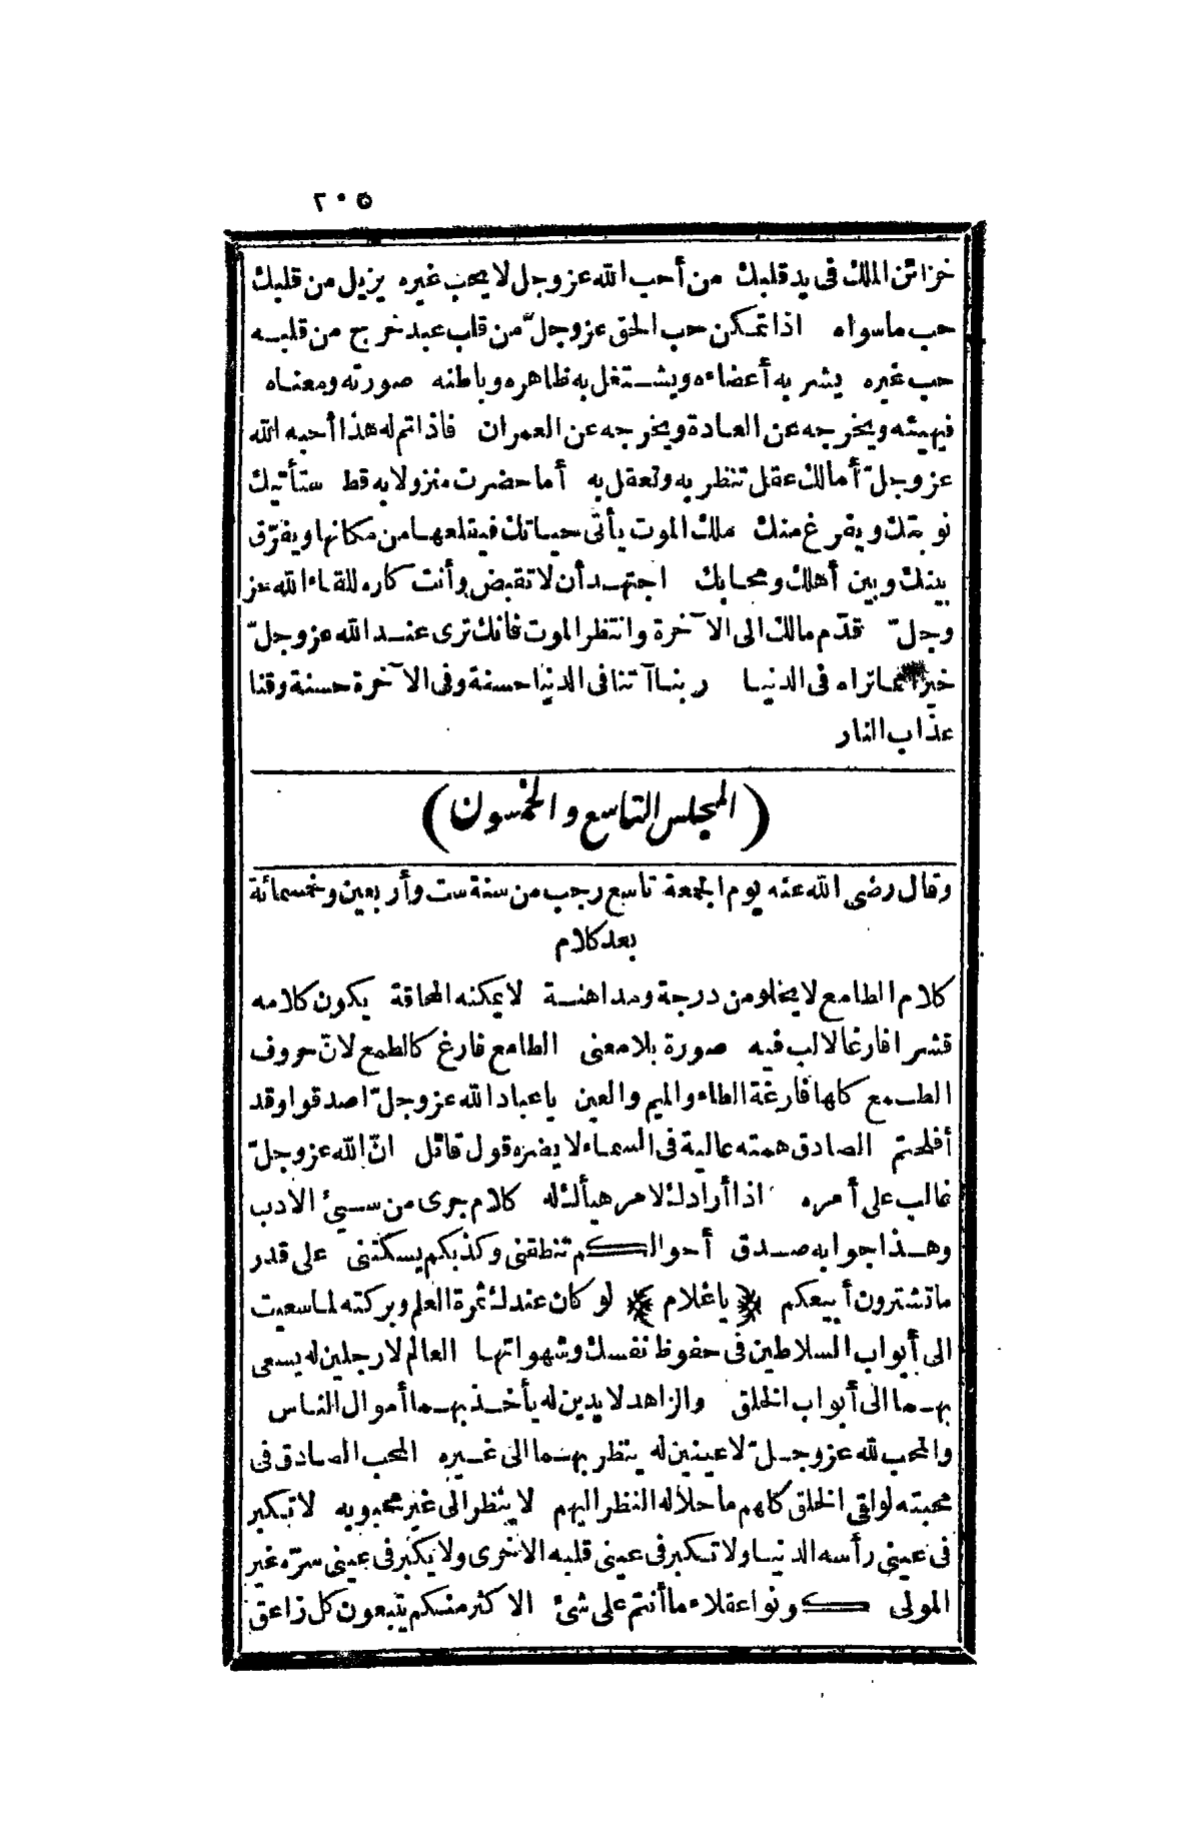 ٢٠٥
خزائن الملك فى يد قلبك من أحب الله عز وجل لا يحب غيره يزيل من قلبك
حب ما سواه اذا تمكن حب الحق عز وجلّ من قلب عبد خرج من قلبه
حب غيره يشربه أعضاءه ويشتغل به ظاهره وباطنه صورته ومعناه
فيهيئه ويخرجه عن العادة ويخرجه عن العمران فاذا تم له هذا أحبه الله
عز وجلّ أمالك عقل تنظر به وتعقل به أما حضرت منزولا به قط ستأتيك
نوبتك ويفرغ منك ملك الموت يأتى حياتك فيقلعها من مكانها ويفرّق
بينك وبين أهلك ومحابك اجتهد أن لا تقبض وأنت كاره للقاء الله عز
وجلّ قدّم مالك الى الآخرة وانتظر الموت فانك ترى عند الله عز وجلّ
خيرا مما تراه فى الدنيا ربنا آتنا فى الدنيا حسنة وفى الآخرة حسنة وقنا
عذاب النار
(المجلس التاسع والخمسون)
وقال رضى الله عنه يوم الجمعة تاسع رجب من سنة ست وأربعين وخمسمائة
بعد كلام
كلام الطامع لا يخلو من درجة ومداهنة لا يمكنه المحاقة يكون كلامه
قشرا فارغا لا لب فيه صورة بلا معنى الطامع فارغ كالطمع لانّ حروف
الطمع كلها فارغة الطاء والميم والعين يا عباد الله عز وجلّ اصدقوا وقد
أفلحتم الصادق همته عالية فى السماء لا يضره قول قائل انّ الله عز وجلّ
غالب على أمره اذا أرادك لامر هيأك له كلام جرى من سيئ الأدب
وهذا جوابه صدق أحوالكم تنطقنى وكذبكم يسكتنى على قدر
ما تشترون أبيعكم (يا غلام) لو كان عندك ثمرة العلم وبركته لما سعيت
الى أبواب السلاطين فى حفوظ نفسك وشهواتها العالم لا رجلين له يسعى
بهما الى أبواب الخلق والزاهد لا يدين له يأخذ بهما أموال الناس
والمحب لله عز وجلّ لا عينين له ينظر بهما الى غيره المحب الصادق فى
محبته لو لقى الخلق كلهم ما حلا له النظر اليهم لا ينظر الى غير محبوبه لا تكبر
فى عينى رأسه الدنيا ولا تكبر فى عينى قلبه الاخرى ولا يكبر فى عينى سرّه غير
المولى كونوا عقلاء ما أنتم على شئ الاكثر منكم يتبعون كل زاعق